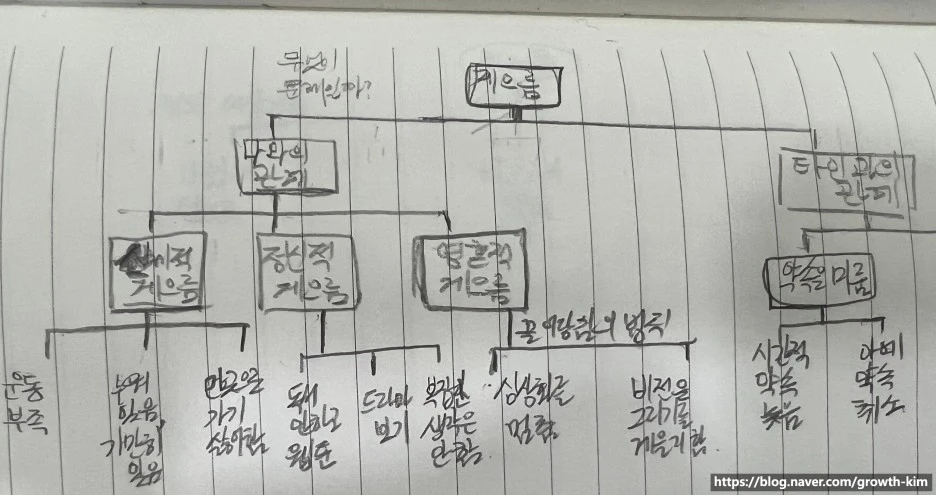 무엇이
문제일까?
게으름
나와의
관계
타인과의
관계
신체적
게으름
정신적
게으름
영혼적
게으름
약속을 미룸
끌어당김의 법칙
운동
부족
누워
있음
가만히
있음
먼곳으로
가기
싫어함
독서
안하고
웹툰
드라마
보기
복잡한
생각은
안함
심상화를
멈춤
비전을
그리기를
게을리함
시간적
약속
늦음
아예
약속
취소
https://blog.naver.com/growth-kim